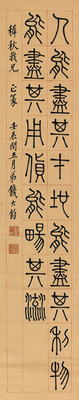 人能盡其才地能盡其利物
能盡其用貨能暢其流
秋我兄 正篆 壬辰閏五月弟錢大鈞